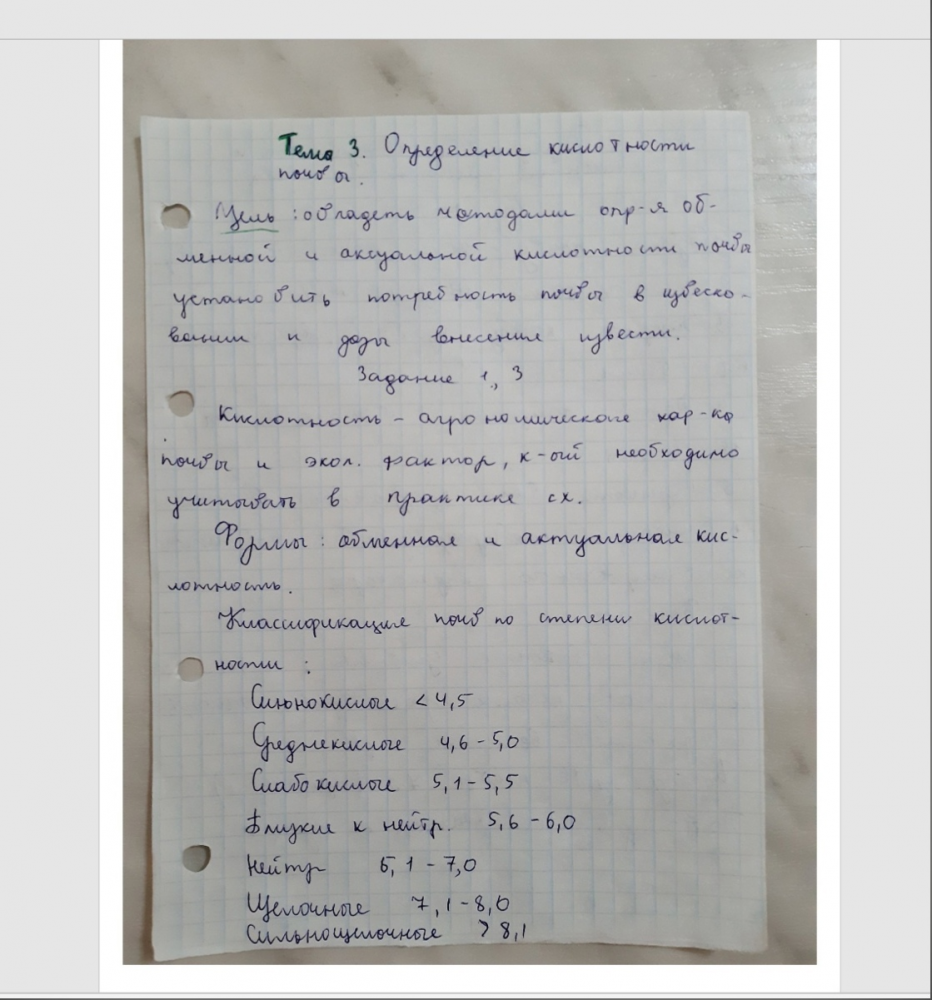 Тема 3. Определение кислотности
почвы.
Цель: овладеть методами опр-я об-
менной и актуальной кислотности почвы
установить потребность почвы в известко-
вании и дозы внесения извести.
Задание 1, 3
Кислотность - агрономическая хар-ка
почвы и экол. фактор, к-ый необходимо
учитывать в практике сх.
Формы: обменная и актуальная кис-
лотность.
Классификация почв по степени кислот-
ности :
Сильнокислые < 4,5
Среднекислые 4,6 - 5,0
Слабокислые 5,1 - 5,5
Близкие к нейтр. 5,6 - 6,0
Нейтр 6,1 - 7,0
Щелочные 7,1 - 8,0
Сильнощелочные > 8,1